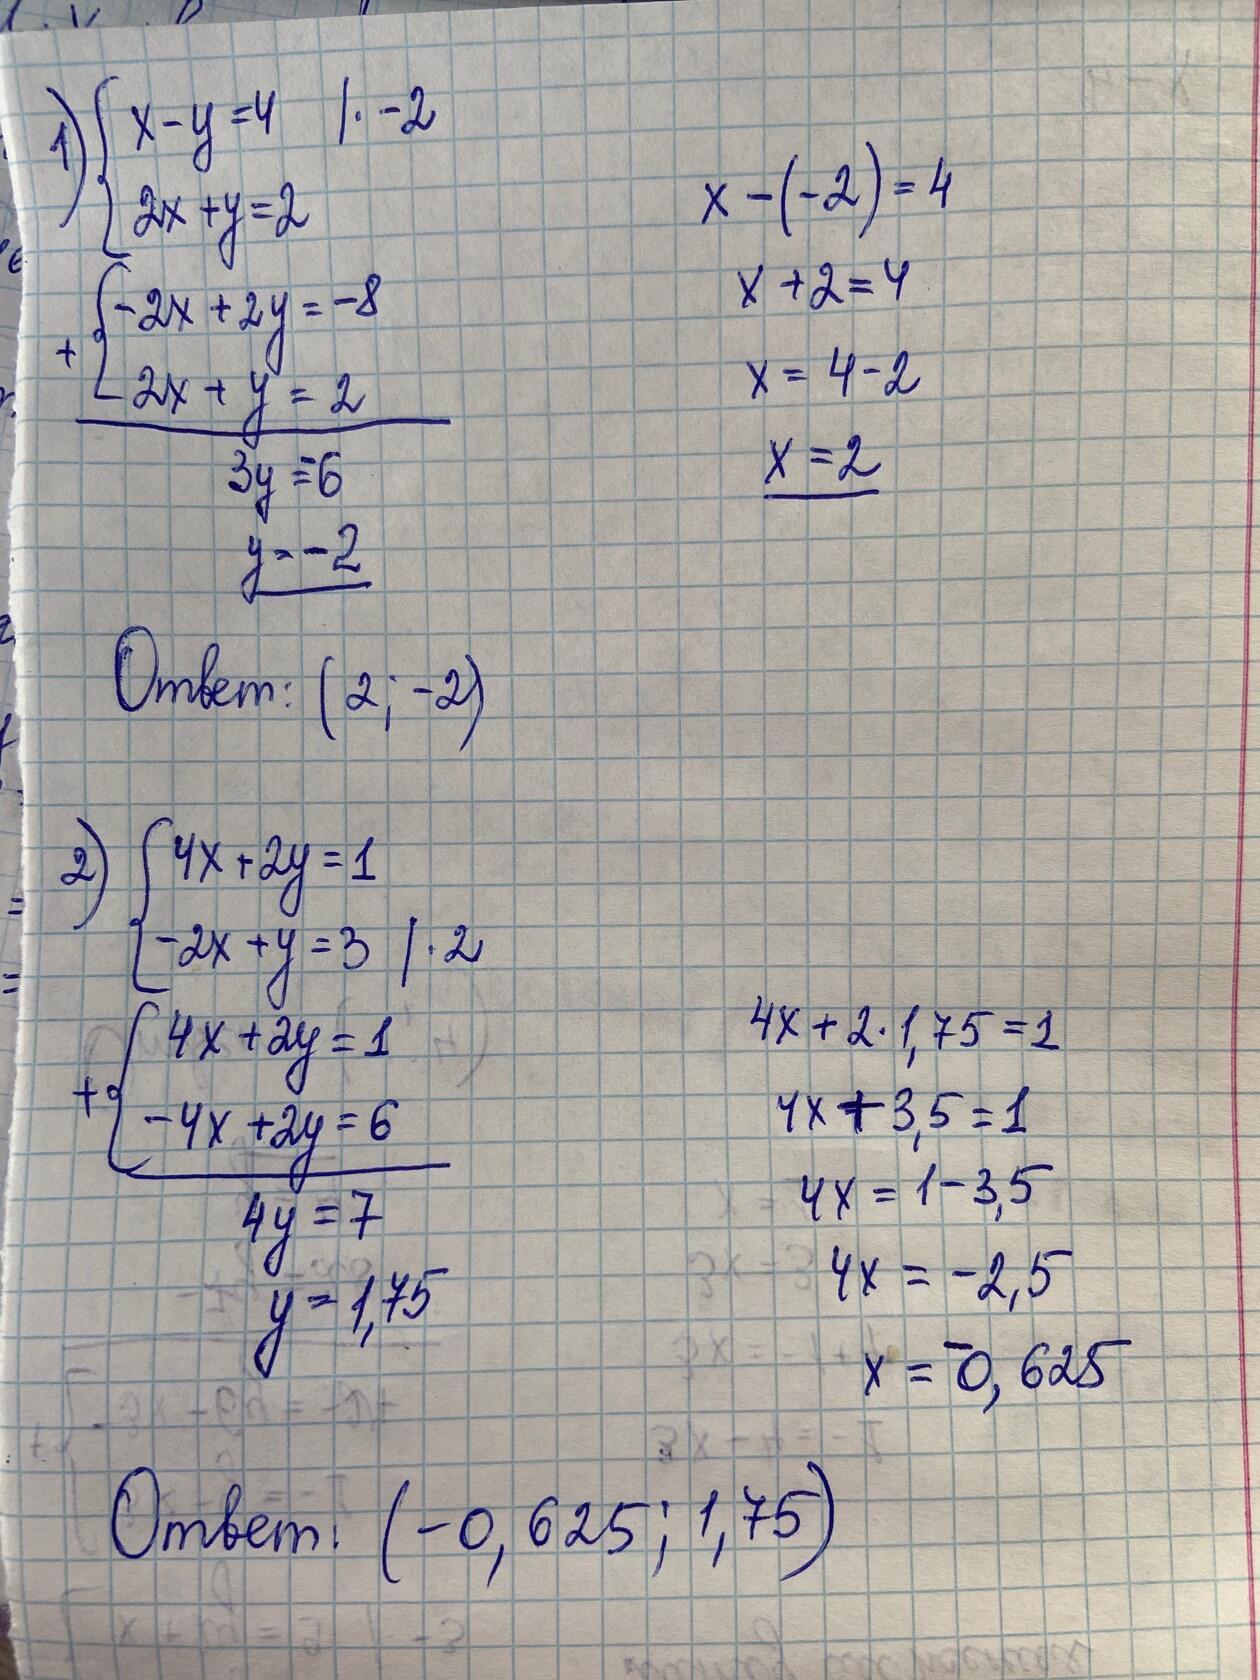 1) { x - y = 4 | · -2
2x + y = 2
+ { -2x + 2y = -8
2x + y = 2
3y = -6
y = -2
x - (-2) = 4
x + 2 = 4
x = 4 - 2
x = 2
Ответ: (2; -2)
2) { 4x + 2y = 1
-2x + y = 3 | · 2
+ { 4x + 2y = 1
-4x + 2y = 6
4y = 7
y = 1,75
4x + 2 · 1,75 = 1
4x + 3,5 = 1
4x = 1 - 3,5
4x = -2,5
x = -0,625
Ответ: (-0,625; 1,75)